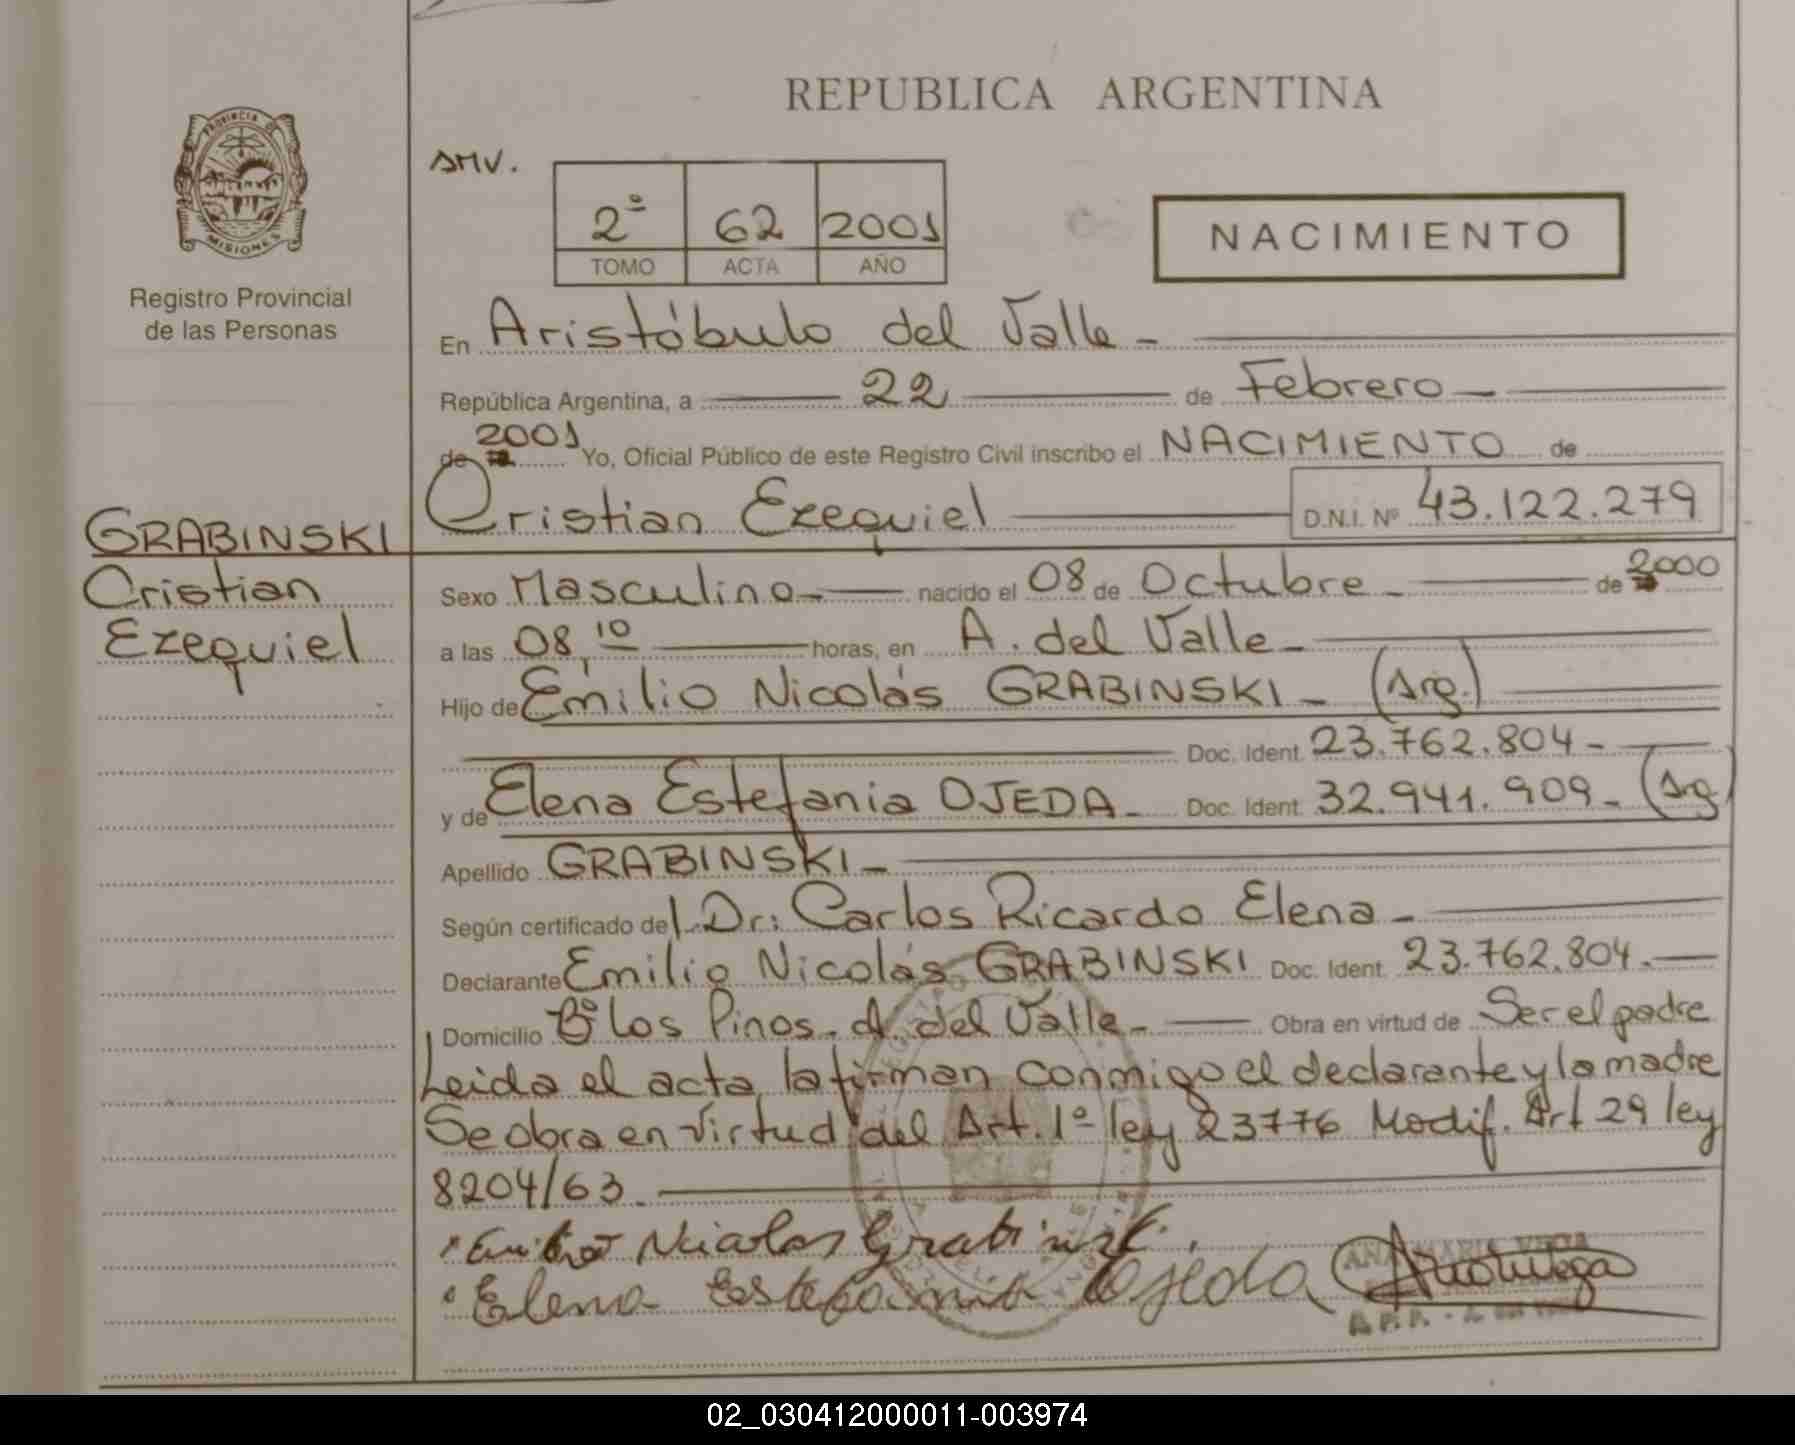 REPUBLICA ARGENTINA
PROVINCIA DE
MISIONES
Registro Provincial
de las Personas
SMV.
2º 62 2001
TOMO ACTA AÑO
NACIMIENTO
En Aristóbulo del Valle -
República Argentina, a 22 de Febrero
de 2001 Yo, Oficial Público de este Registro Civil inscribo el NACIMIENTO de
Cristian Ezequiel D.N.I. Nº 43.122.279
GRABINSKI
Cristian
Ezequiel
Sexo Masculino nacido el 08 de Octubre de 2000
a las 08,10 horas, en A. del Valle
Hijo de Emilio Nicolás GRABINSKI - (Arg.)
Doc. Ident. 23.762.804 -
y de Elena Estefania OJEDA - Doc. Ident. 32.941.909 - (Arg)
Apellido GRABINSKI -
Según certificado del Dr: Carlos Ricardo Elena -
Declarante Emilio Nicolás GRABINSKI Doc. Ident. 23.762.804.
Domicilio Bº Los Pinos - A. del Valle - Obra en virtud de Ser el padre
Leida el acta, la firman conmigo el declarante y la madre
Se obra en virtud del Art. 1º ley 23776 Modif. Art 29 ley
8204/63.
Nicolas Grabinski.
Elena Estefania Ojeda
ANA MARIA VEGA
02_030412000011-003974